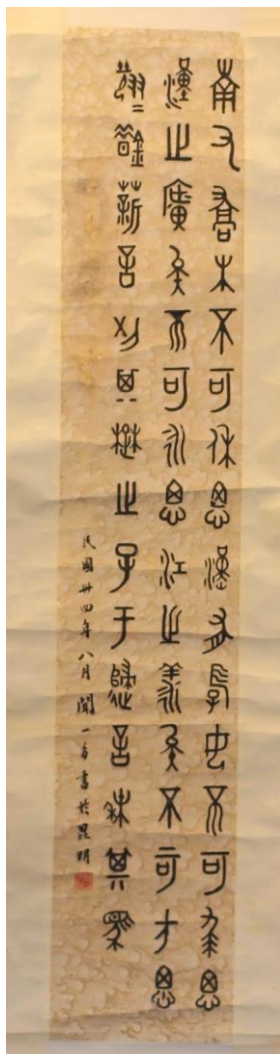 南又喬木不可休思漢有游女不可求思
漢之廣矣不可泳思江之羕矣不可方思
翹〻錯薪言刈其楚之子于歸言秣其馬
民國卅四年八月聞一多書於昆明